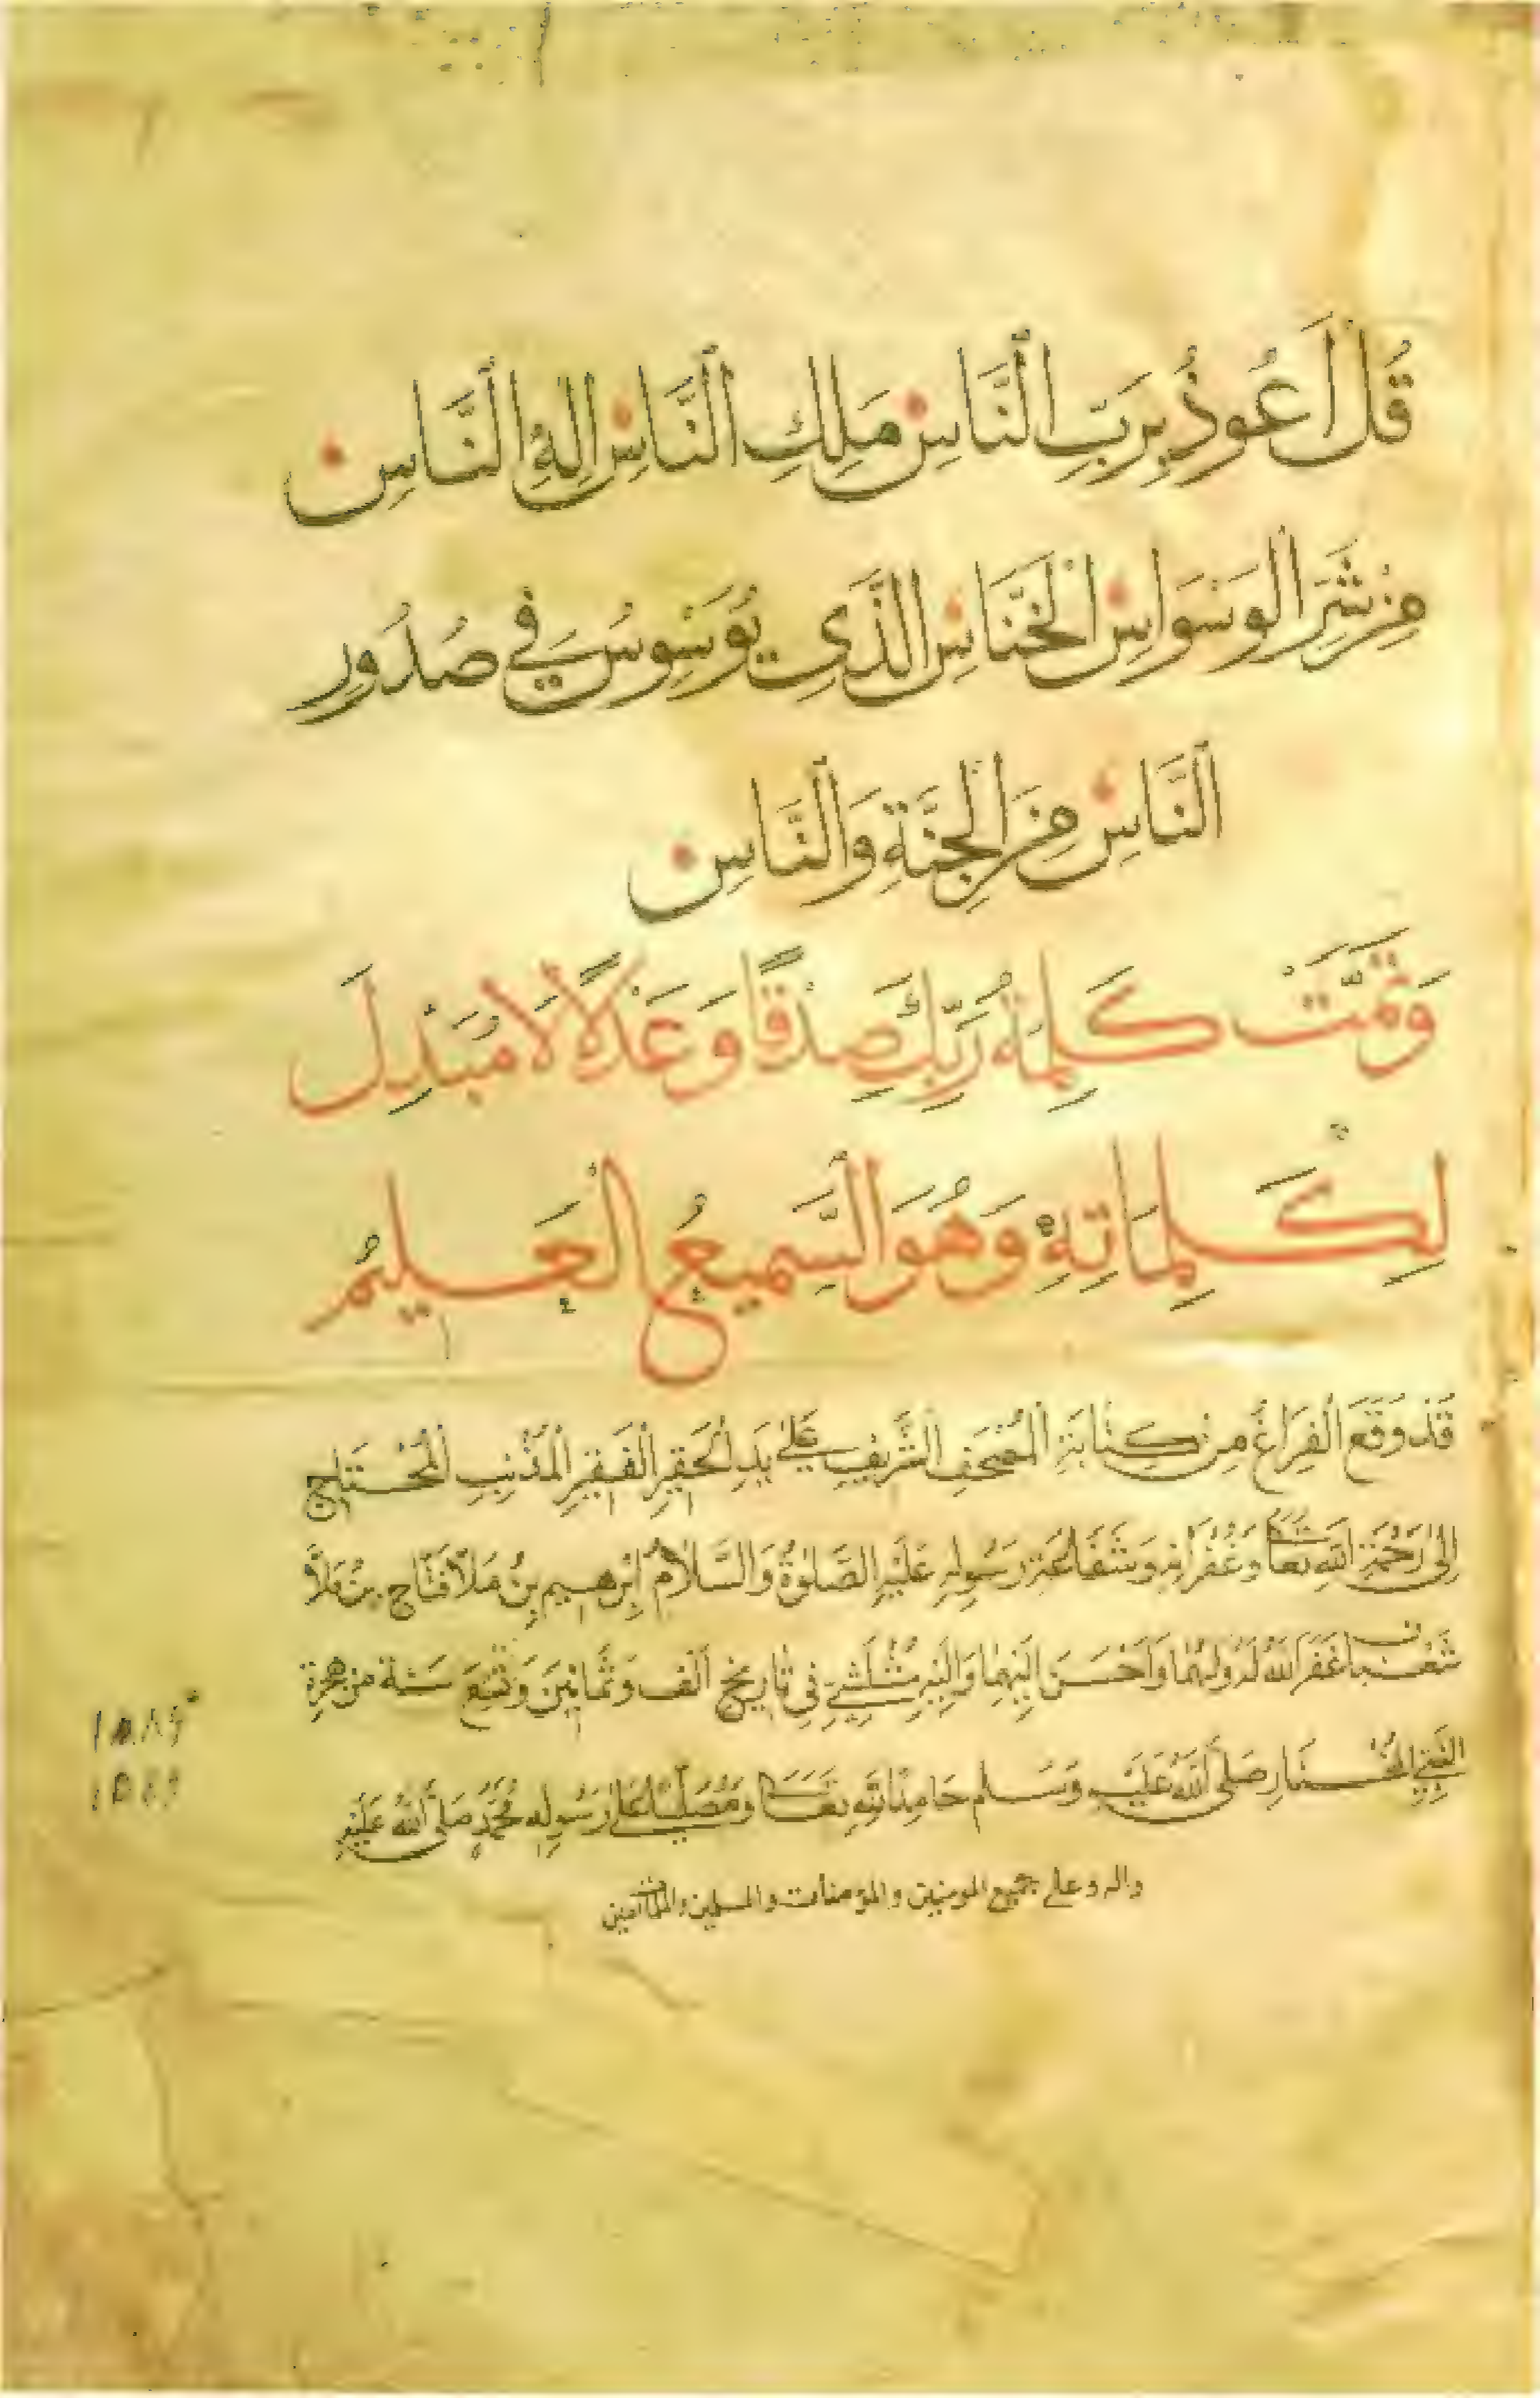 قُلْ أَعُوذُ بِرَبِّ النَّاسِ مَلِكِ النَّاسِ إِلهِ النَّاسِ
مِنْ شَرِّ الْوَسْوَاسِ الْخَنَّاسِ الَّذِي يُوَسْوِسُ فِي صُدُورِ
النَّاسِ مِنَ الْجِنَّةِ وَالنَّاسِ
وَتَمَّتْ كَلِمَةُ رَبِّكَ صِدْقًا وَعَدْلًا لَا مُبَدِّلَ
لِكَلِمَاتِهِ وَهُوَ السَّمِيعُ الْعَلِيمُ
قَدْ وَقَعَ الْفَرَاغُ مِنْ كِتَابَةِ الْمُصْحَفِ الشَّرِيفِ عَلَى يَدِ الْحَقِيرِ الْفَقِيرِ الْمُذْنِبِ الْمُحْتَاجِ
إِلَى رَحْمَةِ اللهِ تَعَالَى وَغُفْرَانِهِ وَشَفَاعَةِ رَسُولِهِ عَلَيْهِ الصَّلٰوةُ وَالسَّلَامُ إِبْرٰهِيمِ بِنْ مَلَّا فَتَّاحِ بِنْ مَلَّا
غَفَرَ اللهُ لَهُ وَلَهُمَا وَأَحْسَنَ إِلَيْهِمَا وَإِلَيْهِ فِي تَارِيخِ أَلْف وَثَمَانِينَ وَتِسْعَ سَنَة مِنْ هِجْرَةِ
النَّبِيِّ الْمُخْتَارِ صَلَّى اللهُ عَلَيْهِ وَسَلَّم حَامِدًا لِلّهِ تَعَالَى وَمُصَلِّيًا عَلَى رَسُولِهِ مُحَمَّدٍ صَلَّى اللهُ عَلَيْهِ
واله وعلى جميع المومنين والمؤمنات والمسلمين والمسلمات